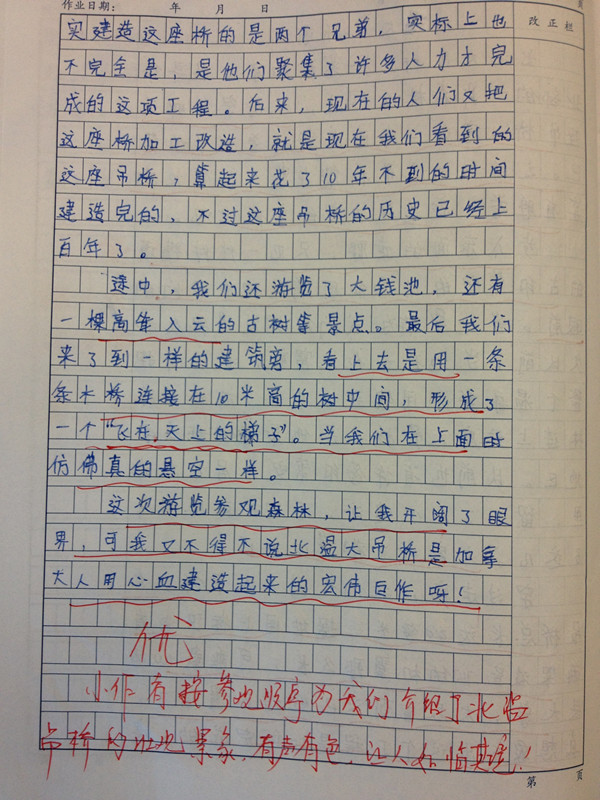 作业日期： 年 月 日
改正栏
实建造这座桥的是两个兄弟，实标上也
不完全是，是他们聚集了许多人力才完
成的这项工程。后来，现在的人们又把
这座桥加工改造，就是现在我们看到的
这座吊桥，算起来花了10年不到的时间
建造完的，不过这座吊桥的历史已经上
百年了。
途中，我们还游览了大钱池，还有
一棵高耸入云的古树等景点。最后我们
来了到一样的建筑旁，看上去是用一条
条木桥连接在10米高的树中间，形成了
一个“飞在天上的梯子”。当我们在上面时
仿佛真的悬空一样。
这次游览参观森林，让我开阔了眼
界，可我又不得不说北温大吊桥是加拿
大人用心血建造起来的宏伟巨作呀！
优
小作者按参观顺序为我们介绍了北温
吊桥的壮观景象，有声有色，让人如临其境！
第 页